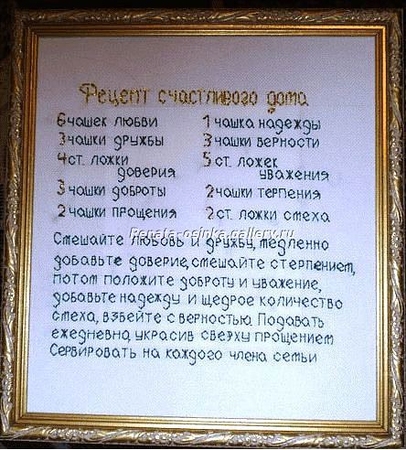 Рецепт счастливого дома
6 чашек любви
3 чашки дружбы
4 ст. ложки
доверия
3 чашки доброты
2 чашки прощения
1 чашка надежды
3 чашки верности
5 ст. ложек
уважения
2 чашки терпения
2 ст. ложки смеха
Renata-osinka.gallery.ru
Смешайте любовь и дружбу, медленно
добавьте доверие, смешайте с терпением,
потом положите доброту и уважение,
добавьте надежду и щедрое количество
смеха, взбейте с верностью. Подавать
ежедневно, украсив сверху прощением
Сервировать на каждого члена семьи